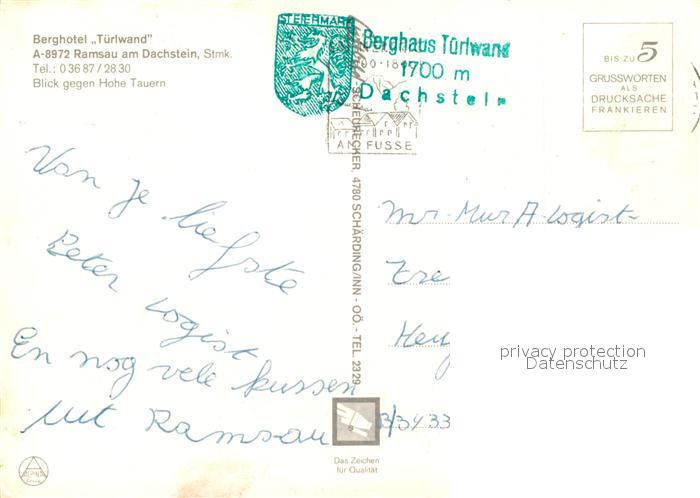 Berghotel „Türlwand"
A-8972 Ramsau am Dachstein, Stmk.
Tel.: 0 36 87 / 28 30
Blick gegen Hohe Tauern
STEIERMARK
Berghaus Türlwand
1700 m
Dachstein
AM FUSSE
BIS ZU 5
GRUSSWORTEN
ALS
DRUCKSACHE
FRANKIEREN
SCHEURECKER, 4780 SCHÄRDING/INN - OÖ. - TEL. 2329
Van je liefste
Peter Logist
En nog vele kussen
uit Ramsau
Mr Mur A. Logist
privacy protection
Datenschutz
B/3433
Das Zeichen
für Qualität
ALPINA